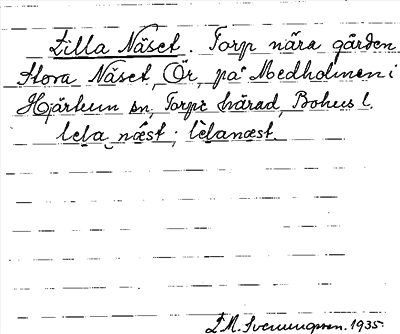 Lilla Näset. Torp nära gården
Stora Näset, Ör, på Medholmen i
Hjärtum sn, Torpe härad, Bohus l.
lela næst; lelanæst.
S. M. Svenungsson. 1935.